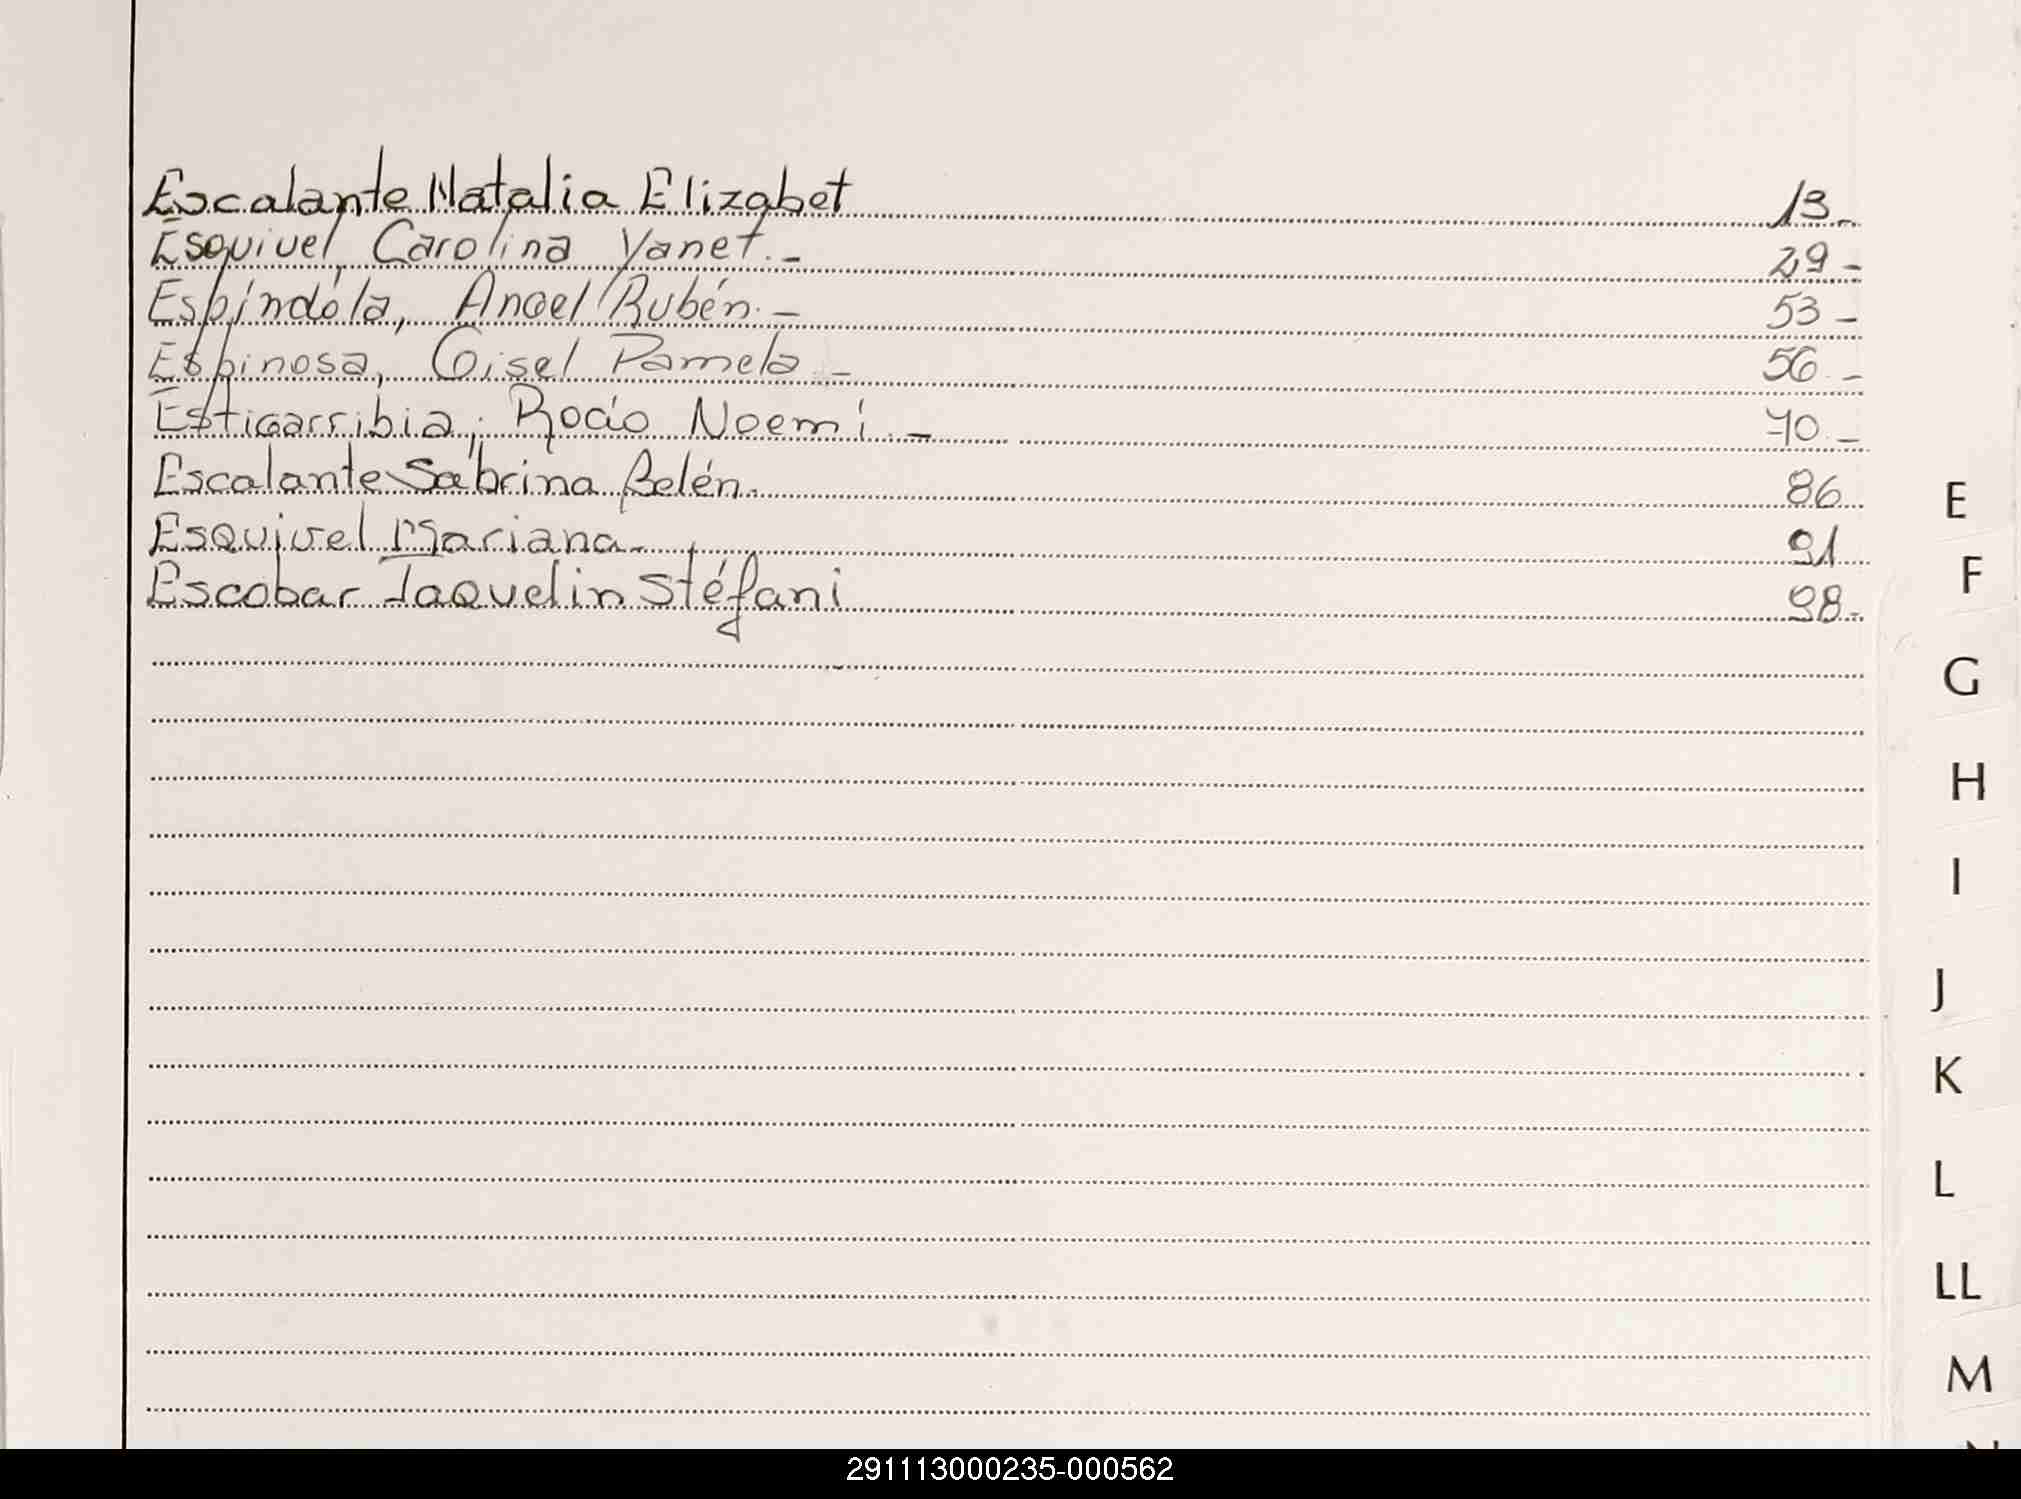 Escalante Natalia Elizabet 13.-
Esquivel, Carolina Yanet.- 29-
Espíndola, Angel Rubén.- 53-
Espinosa, Gisel Pamela.- 56.-
Estigarribia, Rocío Noemi.- 70.-
Escalante Sabrina Belén. 86
Esquivel Mariana.- 91
Escobar Jaquelin Stéfani 98.-
E
F
G
H
I
J
K
L
LL
M
291113000235-000562